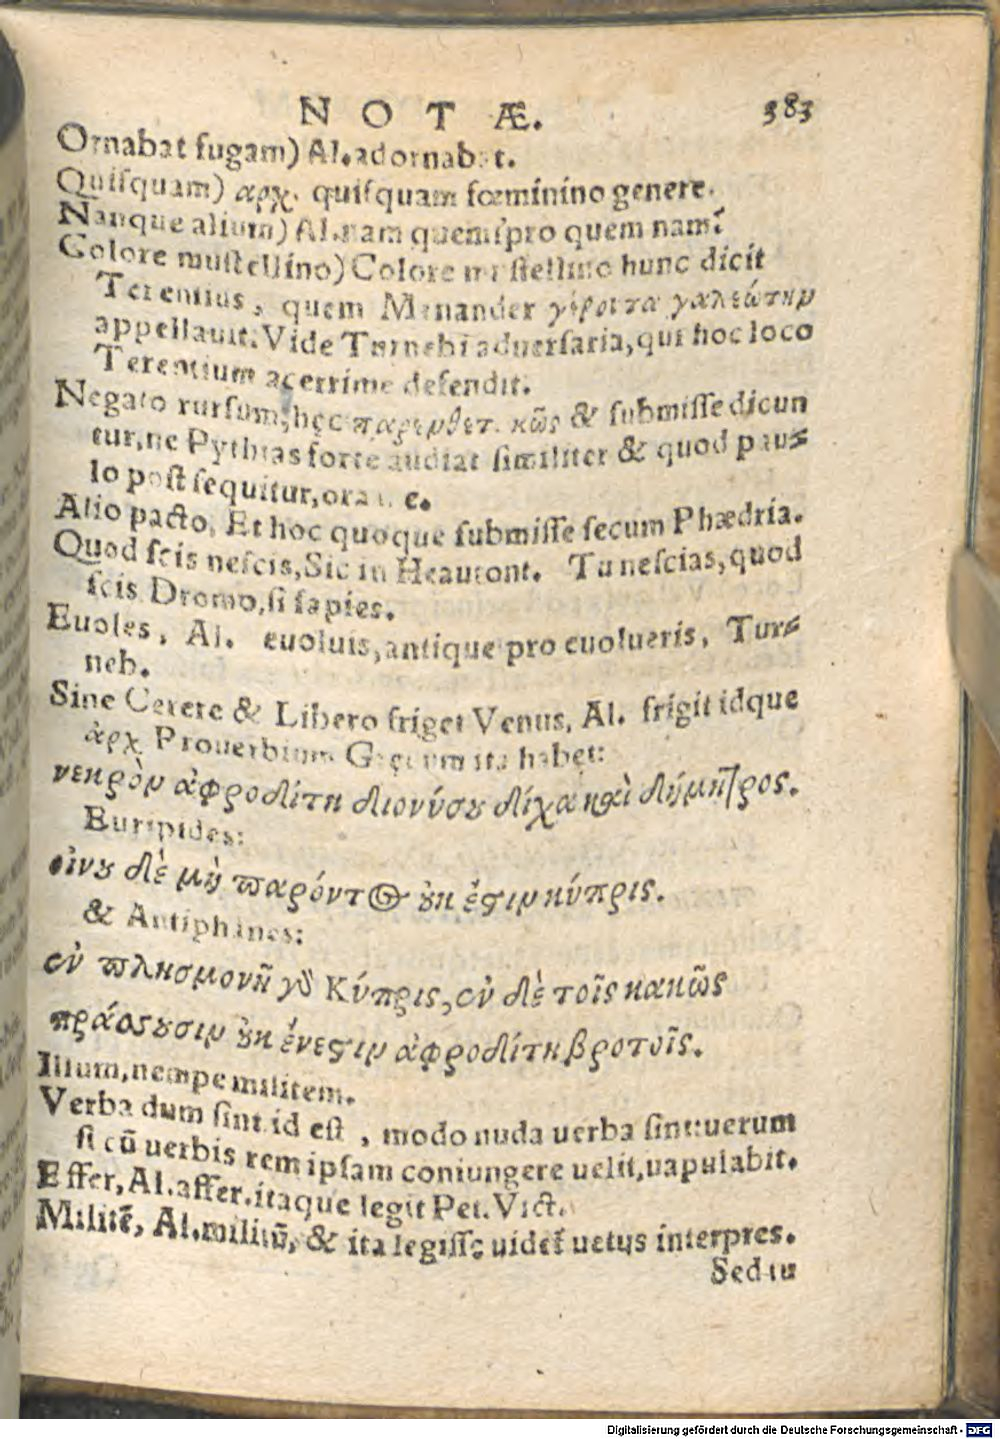 NOTÆ. 383
Ornabat fugam) Al. adornabat.
Quiſquam) αρχ. quiſquam fœminino genere.
Nanque alium) Al. nam quem? pro quem nam?
Colore muſtellino) Colore muſtellino hunc dicit
Terentius, quem Menander γέροντα γαλεώτην
appellauit. Vide Turnebi aduerſaria, qui hoc loco
Terentium acerrime defendit.
Negato rurſum, hęc παρενθετικῶς & ſubmiſſe dicun
tur, ne Pythias forte audiat ſimiliter & quod pau⸗
lo poſt ſequitur, ora
Alio pacto, Et hoc quoque ſubmiſſe ſecum Phædria.
Quod ſcis neſcis, Sic in Heautont. Tu neſcias, quod
ſcis Dromo, ſi ſapies.
Euoles, Al. euoluis, antique pro euolueris, Tur⸗
neb.
Sine Cerere & Libero friget Venus, Al. frigit idque
ἀρχ. Prouerbium Gręcum ita habet:
νεκρὸν ἀφροδίτη διονύσȣ δίχα καὶ δήμητρος.
Euripides:
οἴνȣ δὲ μὴ παρόντος ȣκ ἔστιν κύπρις.
& Antiphanes:
ἐν πλησμονῇ γὰρ Κύπρις, ἐν δὲ τοῖς κακῶς
πράοσȣσιν ȣκ ἔνεστιν ἀφροδίτη βροτοῖς.
Illum, nempe militem.
Verba dum ſint id eſt, modo nuda uerba ſint: uerum
ſi cū uerbis rem ipſam coniungere uelit, uapulabit.
Effer, Al. affer. itaque legit Pet. Vict.
Militē, Al. militū, & ita legiſſe uidet uetus interpres.
Sed tu
Digitalisierung gefördert durch die Deutsche Forschungsgemeinschaft - DFG